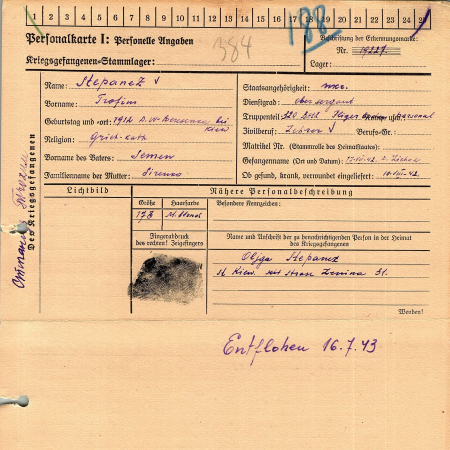 1 2 3 4 5 6 7 8 9 10 11 12 13 14 15 16 17 18 19 20 21 22 23 24 25
Personalkarte I: Personelle Angaben
384
188
Beschriftung der Erkennungsmarke:
Nr. 19227.
Kriegsgefangenen-Stammlager:
Lager:
Des Kriegsgefangenen
Name: Stepanez
Vorname: Trofim
Geburtstag und -ort: 1912 bei Kiew
Religion: Griech-kath
Vorname des Vaters: Semen
Familienname der Mutter: Sirenko
Staatsangehörigkeit: ukr.
Dienstgrad: Obersergant
Truppenteil: 320
Zivilberuf: Berufs-Gr.:
Matrikel Nr. (Stammrolle des Heimatstaates):
Gefangennahme (Ort und Datum):
Ob gesund, krank, verwundet eingeliefert:
Lichtbild
Nähere Personalbeschreibung
Größe
Haarfarbe
Besondere Kennzeichen:
173
Fingerabdruck
des rechten! Zeigefingers
Name und Anschrift der zu benachrichtigenden Person in der Heimat
des Kriegsgefangenen
Olga Stepanez
st. Kiew 31.
Wenden!
Entflohen 16.7.43